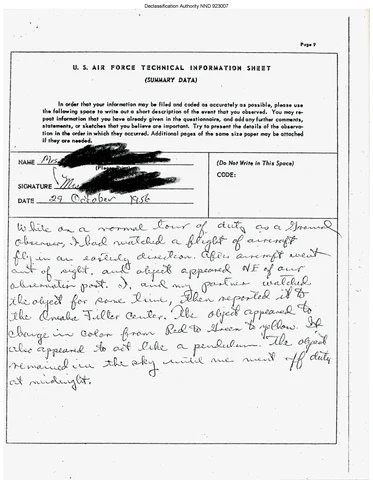 Declassification Authority NND 923007
Page 9
U. S. AIR FORCE TECHNICAL INFORMATION SHEET
(SUMMARY DATA)
In order that your information may be filed and coded as accurately as possible, please use
the following space to write out a short description of the event that you observed. You may re-
peat information that you have already given in the questionnaire, and add any further comments,
statements, or sketches that you believe are important. Try to present the details of the observa-
tion in the order in which they occurred. Additional pages of the same size paper may be attached
if they are needed.
NAME Mrs.
(Do Not Write in This Space)
CODE:
SIGNATURE Mrs
DATE 29 October 1956
While on a normal tour of duty as a Ground
Observer, I had watched a flight of aircraft
fly in an easterly direction. After aircraft went
out of sight, and object appeared NE of our
observation post. I, and my partner watched
the object for some time, then reported it to
the Omaha Filter Center. The object appeared to
change in color from Red to Green to yellow. It
also appeared to act like a pendulum. The object
remained in the sky until we went off duty
at midnight.